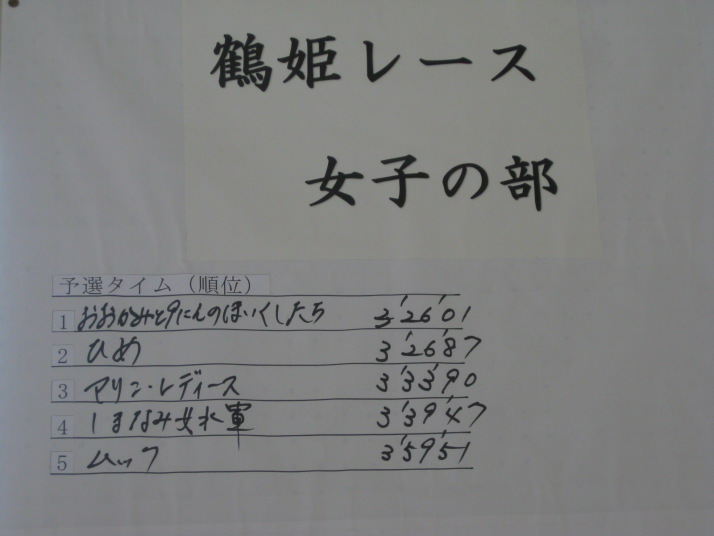 鶴姫レース
女子の部
予選タイム（順位）
1 おおかみと9にんのほいくしたち 3'26'01
2 ひめ 3'26'87
3 マリン・レディース 3'33'90
4 しまなみ女水軍 3'39'47
5 ムック 3'59'51